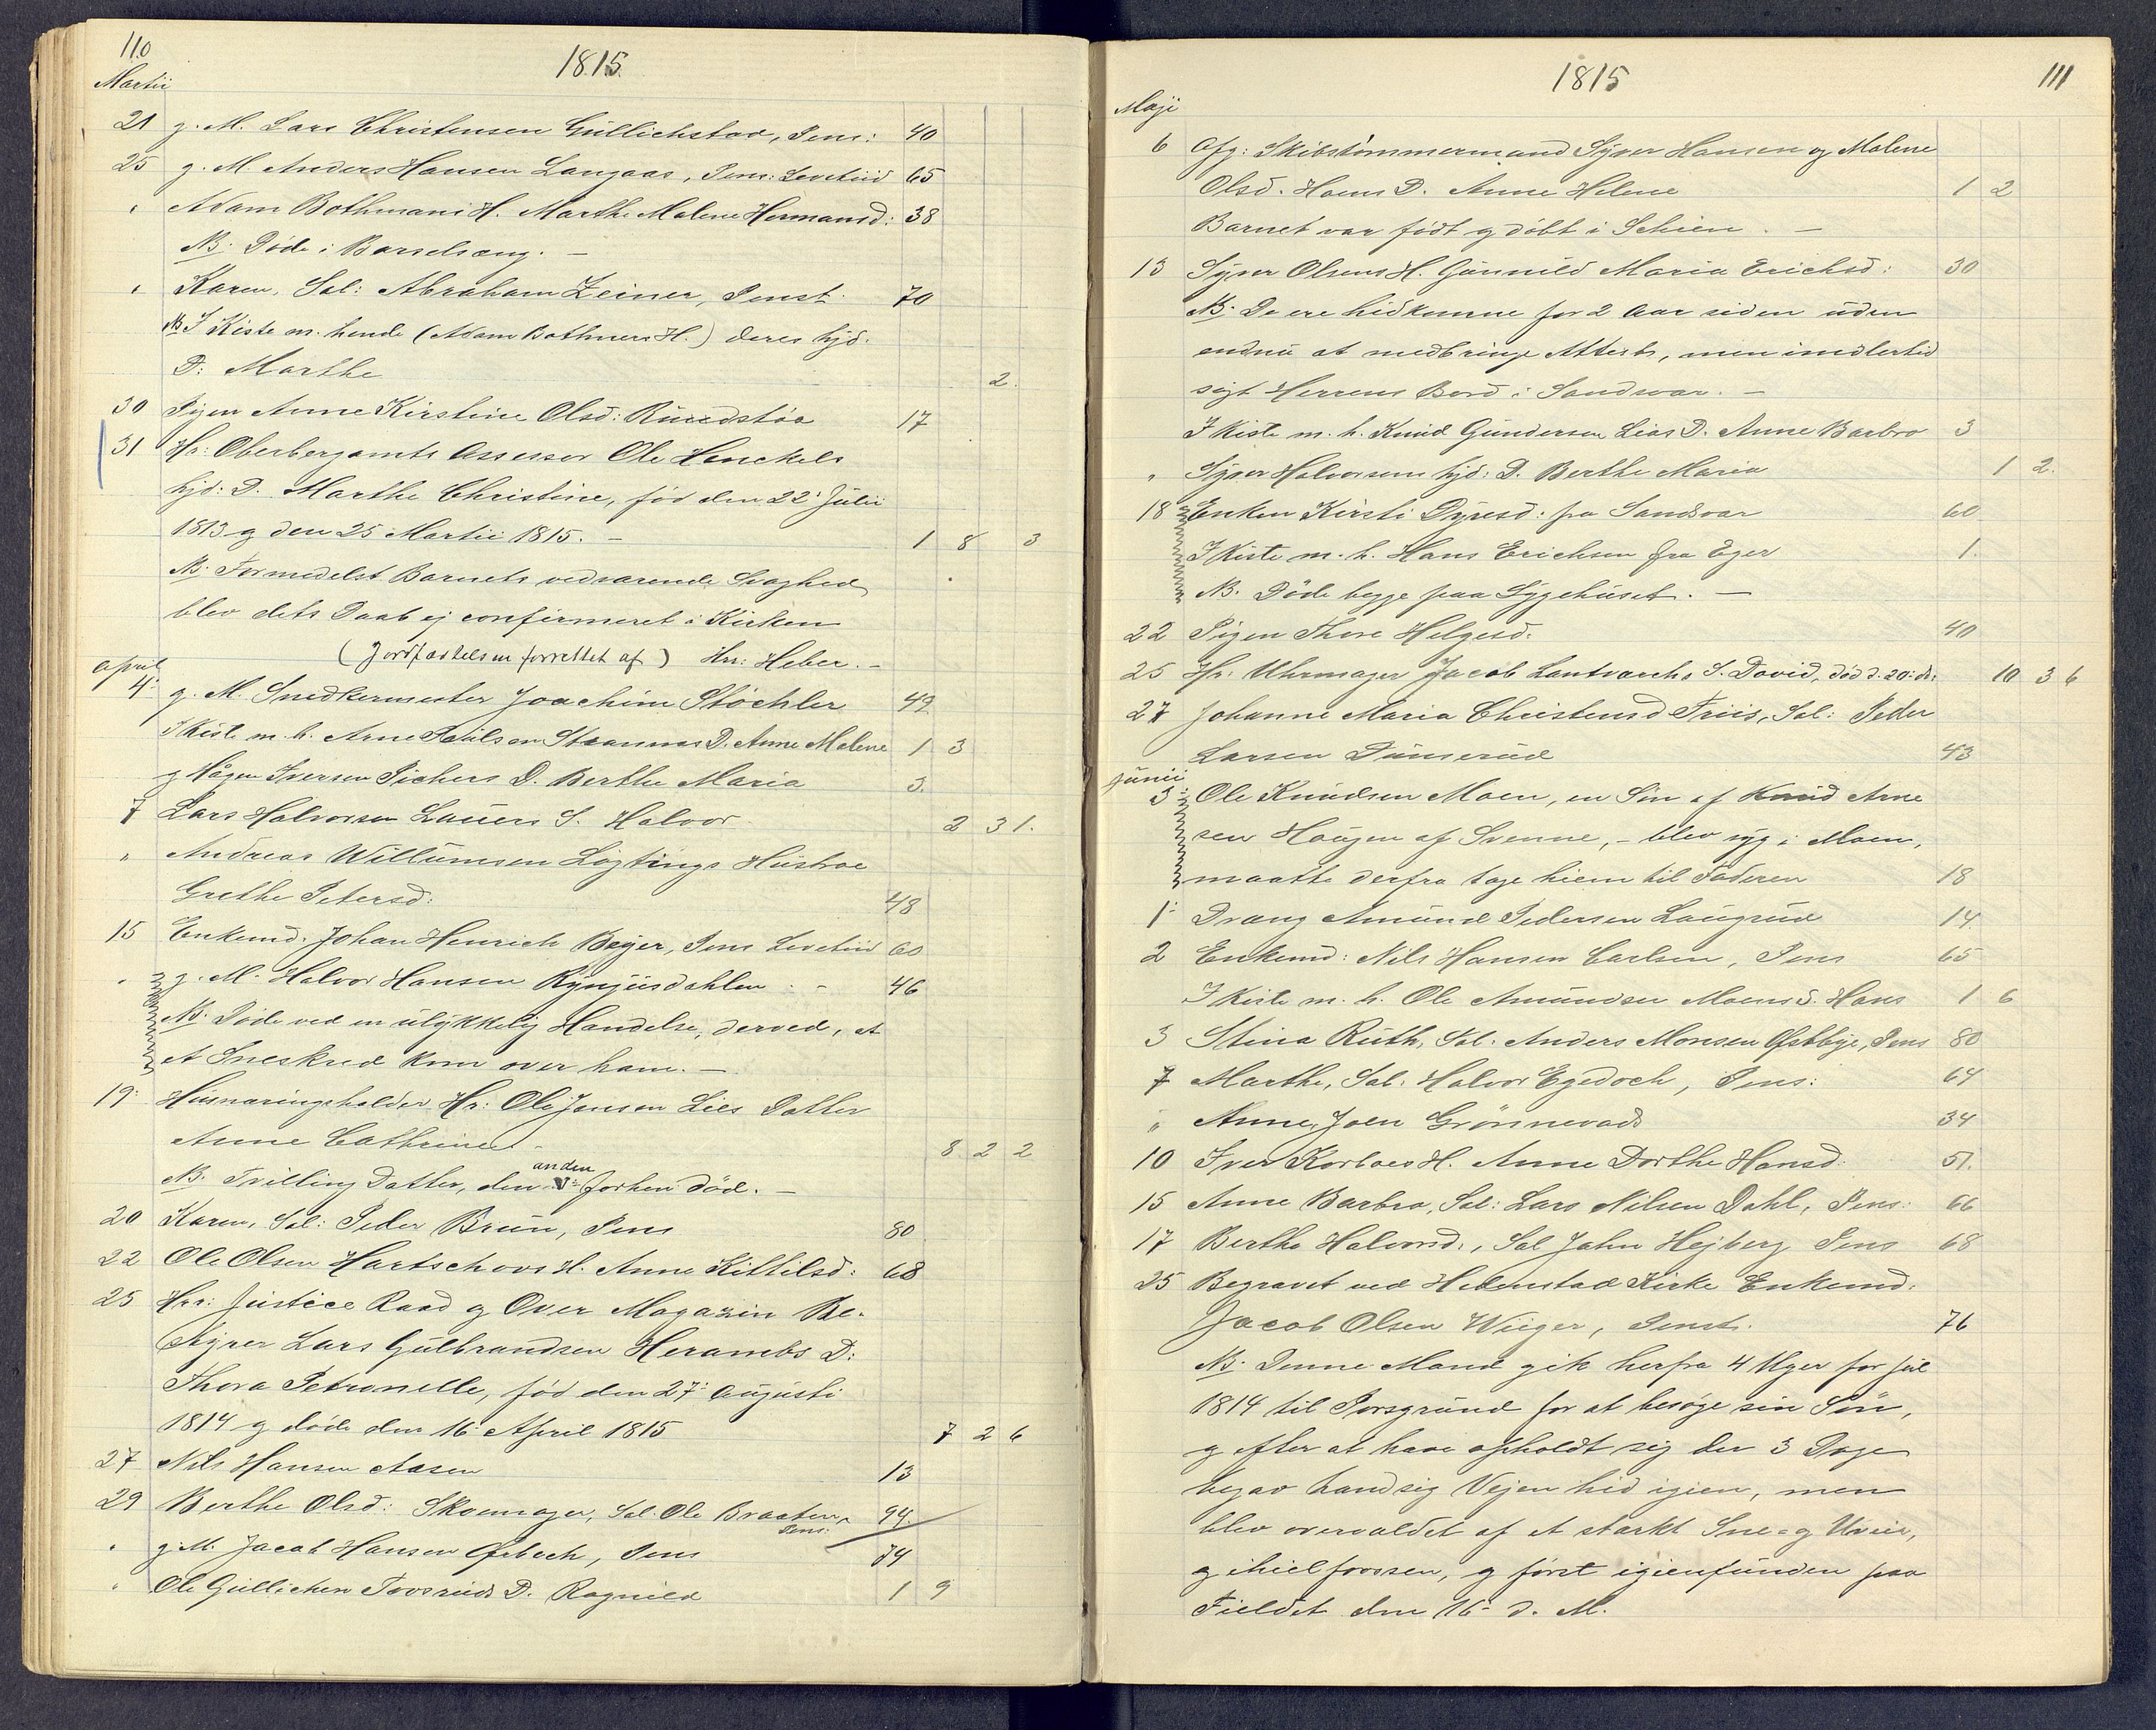 110
1815.
Martii
21 g. M. Lars Christensen Gullichstad, Pens: 40
25 g. M. Anders Hansen Langaas, Pens: Levetiid 65
" Adam Bothmans H. Marthe Malene Hermansd: 38
NB. Döde i Barselseng. —
" Karen, Sal: Abraham Zeiner, Penst. 70
NB I Kiste m. hende (Adam Bothners H.) deres hjd.
D: Marthe 2.
30 Pigen Anne Kirstine Olsd: Rundstöa 17
31 Hr: Oberbergamts Assessor Ole Henckels
hjd: D. Marthe Christine, fød den 22: Julii
1813 g den 25 Martii 1815. — 1 8 3
NB. Formedelst Barnets vedvarende Svaghed
blev dets Daab ej confirmeret i Kirken
(Jordfæstelsen forrettet af) Hr: Heber. —
April
4: g. M. Snedkermester Joachim Stöchler 49
I Kiste m. h. Arne Poulsen Straumas D. Anne Malene 1 3
g Hågen Iversen Pichers D. Berthe Maria 3.
7 Lars Halvorsen Lauers S. Halvor 2 3 1.
" Andreas Willumsen Lögtings Hustroe
Grethe Petersd: 48
15 Enkemd. Johan Henrich Beyer, Pens Levetiid 60
" g. M. Halvor Hansen Ryngüsdahlen . — 46
NB. Döde ved en ulykkelig Handelse, derved, at
et Sneskred kom over ham. —
19: Husnæringsholder Hr: Ole Jensen Lies Datter
Anne Cathrine — 8 2 2
anden
NB. Tvilling Datter, den forhen död. —
20 Karen, Sal: Peder Brun, Pens 80
22 Ole Olsen Hartschovs H. Anne Kittilsd: 68
25 Hrr: Justice Raad g Over Magazin Be-
styrer Lars Gulbrandsen Herambs D:
Thora Petronelle, fød den 27: Augusti
1814 g döde den 16 April 1815 7 2 6
27 Nils Hansen Aasen 13
29 Berthe Olsd: Skoemager, Sal. Ole Braaten, 94.
Pens:
" g. M. Jacob Hansen Ørbech, Pens 74
" Ole Gullichsen Tovsruds D. Ragnild 1 9
1815
111
Maji
6 Afg: Skibstömmermand Syver Hansen og Malene
Olsd. Haems D. Anne Helene 1 2
Barnet var födt g döbt i Schien . —
13 Syver Olsens H. Gunnild Maria Erichsd: 30
NB. De ere hidkomne for 2 Aar siden uden
endnu at medbringe Attest, men imidlertid
sögt Herrens Bord i Sandsvær. —
I Kiste m. h. Knud Gundersen Lias D. Anne Barbro 3
" Syver Halvorsens hjd: D. Berthe Maria 1 2.
18 Enken Kirsti Dyresd: fra Sandsvær 60
I Kiste m. h. Hans Erichsen fra Eger 1.
NB. Döde begge paa Sygehuset. —
22 Pigen Thore Helgesd. 40
25 Hr: Uhrmager Jacob Lantvarchs S. David, död d. 20: ds: 10 3 6
27 Johanne Maria Christensd Friis, Sal: Peder
Larsen Dunserud 43
Junii
3: Ole Knudsen Moen, en Sön af Knud Arne
sen Haugen af Svenne, — blev syg i Moen,
maatte derfra tage hiem til Faderen 18
1: Dreng Amund Pedersen Laugrud 14.
2 Enkemd: Nils Hansen Carlsen, Pens 65
I Kiste m. h. Ole Amundsen Moens S. Hans 1 6
3 Stina Ruth, Sal. Anders Monsen Østbye, Pens 80
7 Marthe, Sal. Halvor Egedoch, Pens: 64
" Anne, Joen Grönnevads 34
10 Iver Korboes H. Anne Dorthe Hansd. 51.
15 Anne Barbra, Sal: Lars Nilsen Dahl, Pens: 66
17 Berthe Halvorsd:, Sal John Hejberg Pens 68
25 Begravet ved Hedenstad Kirke Enkemd:
Jacob Olsen Wieger, Penst. 76
NB. Denne Mand gik herfra 4 Uger for Jul
1814 til Porsgrund for at besöge sin Sön,
g efter at have opholdt sig der 3 Dage
begav hand sig Vejen hid igien, men
blev overvældet af et stærkt Sne- g Uveir,
g ihielfrossen, g först igienfunden paa
Fieldet den 16: d. M.